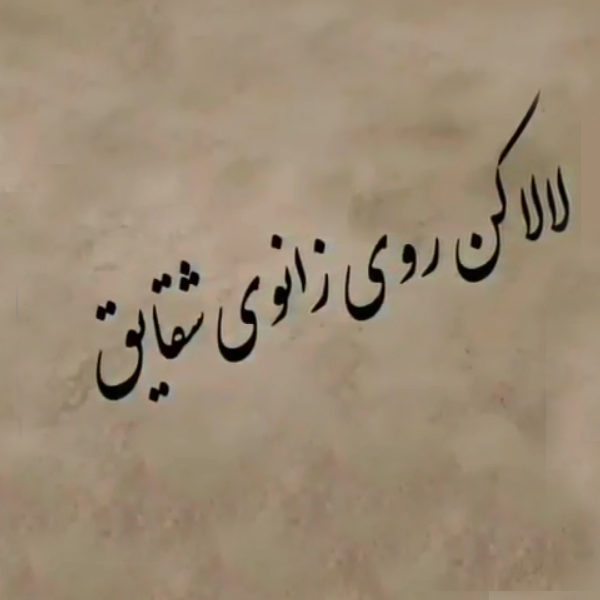 لالا کن روی زانوی شقایق